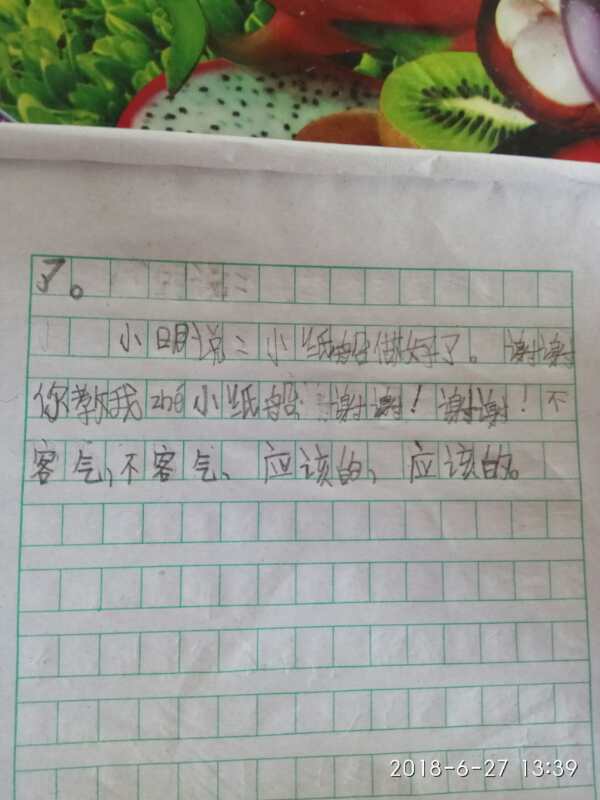 了。
小明说：小纸船做好了。谢谢
你教我zhé小纸船 谢谢！谢谢！不
客气，不客气、应该的，应该的。
2018-6-27 13:39